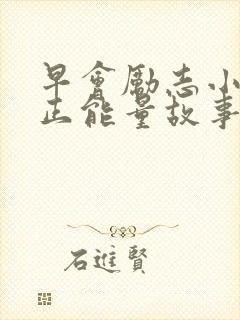 早會勵志小
正能量故事
石進賢